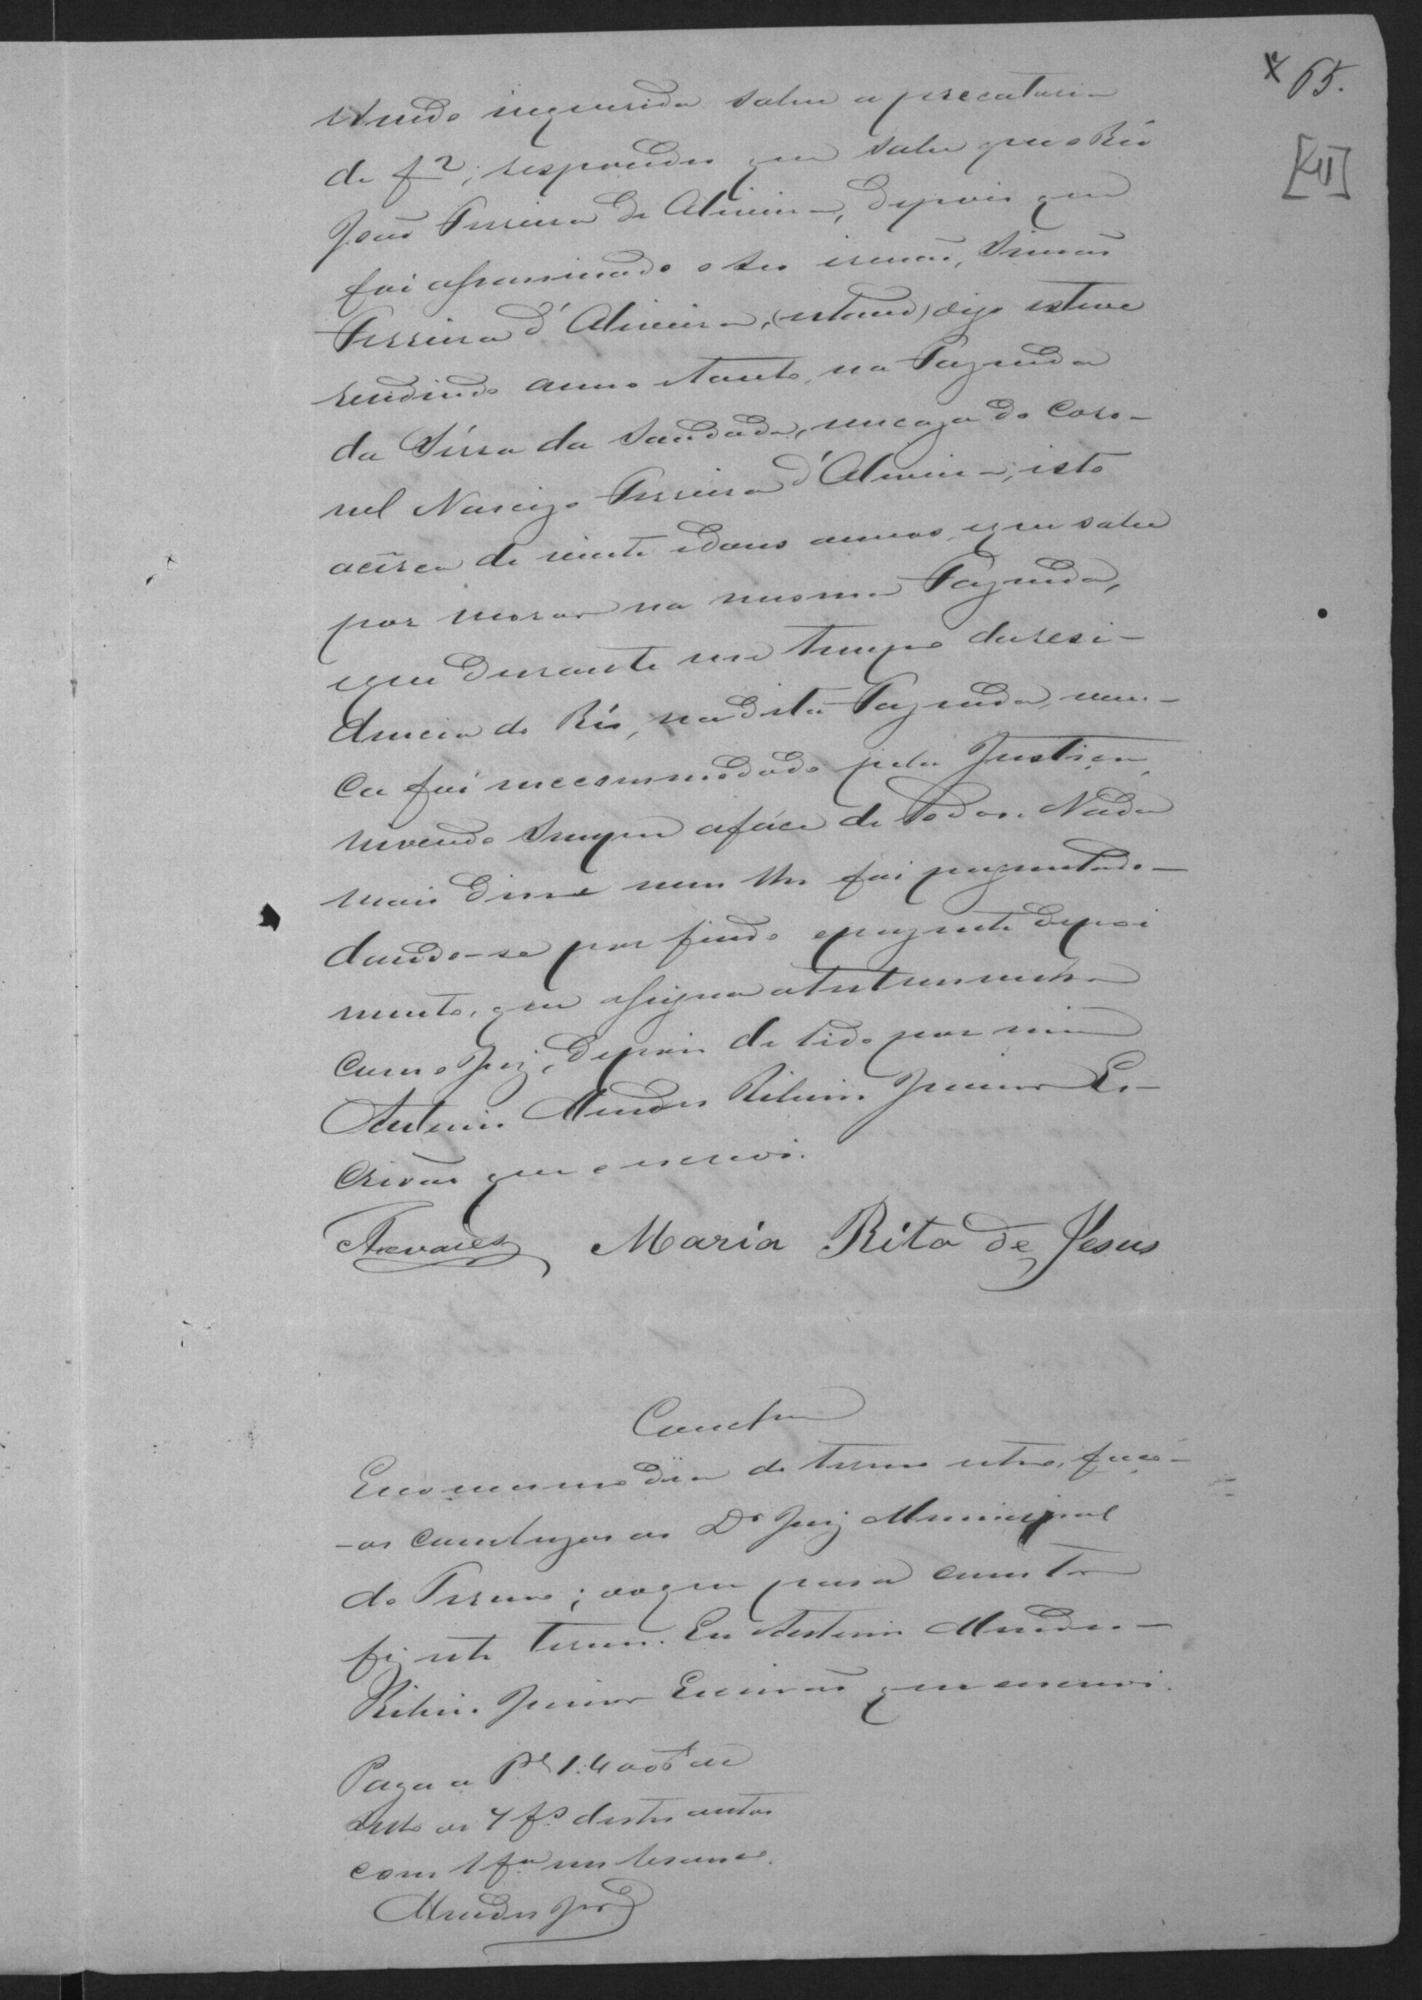 65.
[41]
Sendo inquerida sobre a precatoria
de f 2, respondeu que sabe que o Réo
João Ferreira de Almeida, depois que
foi assassinado o seo irmão, Simão
Ferreira d'Almeida, (estand) digo esteve
residindo anno e tanto, na Fazenda
da Serra da Saudade, em caza do Coro-
nel Narcizo Ferreira d'Almeida, isto
acerca de vinte e dous annos, e que sabe
por morar na mesma Fazenda,
e que durante un tempo da resi-
dencia do Réo, na dita Fazenda, nun-
ca foi incommodado pela Justiça,
vivendo sempre a face de todos. Nada
mais disse nem lhe foi perguntado -
dando-se por findo o prezente depoi
mento, que assigna a testemunha
com o Juiz, depois de lido por mim
Antonio Mendes Ribeiro Junior Es-
crivão que o escrevi.
Tavares Maria Rita de Jesus
Concham
E no mesmo dia do termo retro, faço -
- os conclusos ao Dr Juiz Municipal
do Termo; do que para constar
fiz este termo. Eu Antonio Mendes -
Ribeiro Junior Escrivão que escrevi.
Paga a Pe 1:400 de
sello os 7 fs destes autos
com 1 fa em branco.
Mendes Jor